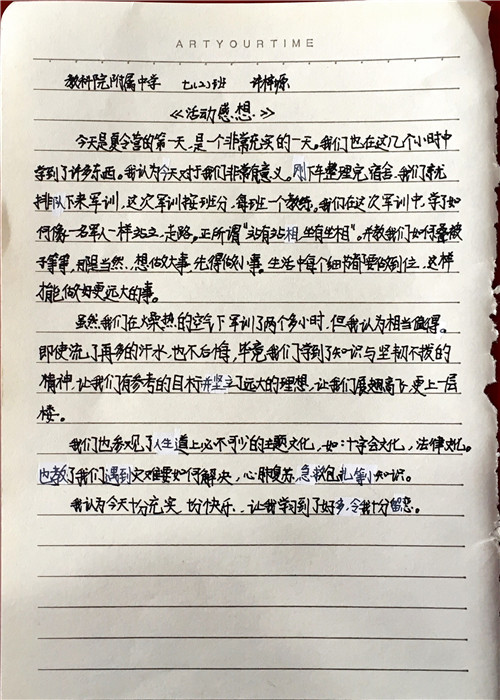 ARTYOURTIME
教科院附属中学 七(2)班 许梓源
《活动感想》
今天是夏令营的第一天,是一个非常充实的一天。我们也在这几个小时中
学到了许多东西。我认为今天对于我们非常有意义。刚下车整理完宿舍,我们就
排队下来军训,这次军训按班分,每班一个教练。我们在这次军训中,学了如
何像一名军人一样站立,走路。正所谓“站有站相,坐有坐相”。并教我们如何叠被
子等等,那是当然,想做大事,先得做小事。生活中每个细节都要做到位,这样
才能做好更远大的事。
虽然我们在燥热的空气下军训了两个多小时,但我认为相当值得。
即使流了再多的汗水,也不后悔,毕竟我们学到了知识与坚韧不拔的
精神,让我们有参考的目标并坚立了远大的理想,让我们展翅高飞,更上一层
楼。
我们也参观了人生道上必不可少的主题文化,如:十字会文化,法律文化。
也教了我们遇到灾难要如何解决,心肺复苏,急救包扎等知识。
我认为今天十分充实,十分快乐,让我学习到了好多,令我十分留恋。